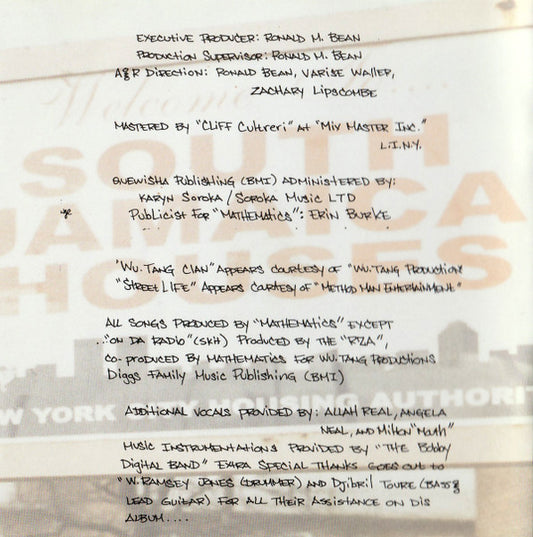 EXECUTIVE PRODUCER: RONALD M. BEAN
PRODUCTION SUPERVISOR: RONALD M. BEAN
A&R DIRECTION: RONALD BEAN, VARISE WALLER,
ZACHARY LIPSCOMBE
MASTERED BY "CLIFF CULTRERI" AT "MIX MASTER INC."
L.I.N.Y.
QUEWISHA PUBLISHING (BMI) ADMINISTERED BY:
KARYN SOROKA / SOROKA MUSIC LTD
PUBLICIST FOR "MATHEMATICS": ERIN BURKE
"WU.TANG CLAN" APPEARS COURTESY OF "WU.TANG PRODUCTION"
"STREET LIFE" APPEARS COURTESY OF "METHOD MAN ENTERTAINMENT"
ALL SONGS PRODUCED BY "MATHEMATICS" EXCEPT
.."ON DA RADIO" (SKIT) PRODUCED BY THE "RZA",
CO-PRODUCED BY MATHEMATICS FOR WU.TANG PRODUCTIONS
DIGGS FAMILY MUSIC PUBLISHING (BMI)
ADDITIONAL VOCALS PROVIDED BY: ALLAH REAL, ANGELA
NEAL, AND MILTON "MOUTH"
MUSIC INSTRUMENTATIONS PROVIDED BY "THE BOBBY
DIGITAL BAND" EXTRA SPECIAL THANKS GOES OUT TO
"W. RAMSEY JONES (DRUMMER) AND DJIBRIL TOURE (BASS &
LEAD GUITAR) FOR ALL THEIR ASSISTANCE ON DIS
ALBUM....
Welcome
SOUTH
JAMAICA
HOUSES
NEW YORK CITY HOUSING AUTHORIT